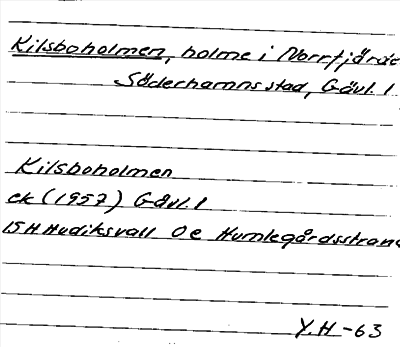 Kilsboholmen, holme i Norrfjärde
Söderhamns stad, Gävl. l
Kilsboholmen
ek (1957) Gävl. l
15H Hudiksvall 0e Humlegårdsstrand
Y.H -63